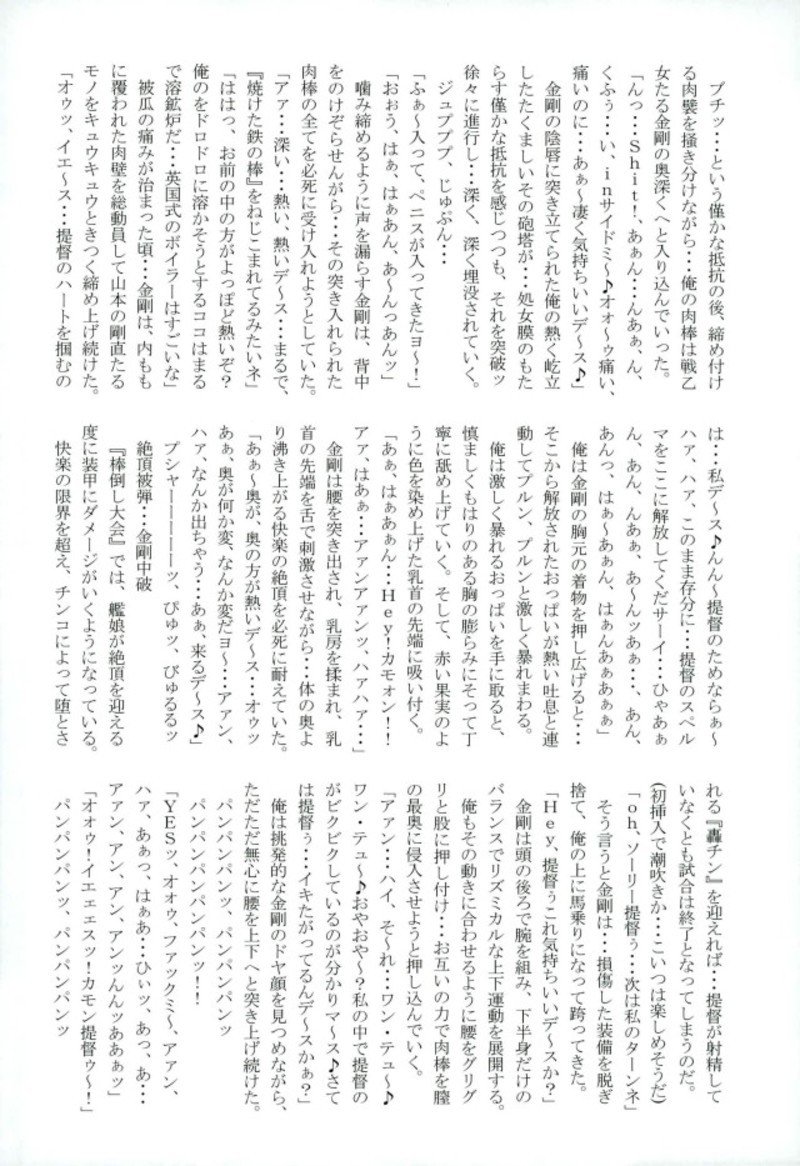 プチッ・・・という僅かな抵抗の後、締め付け
る肉襞を掻き分けながら・・・俺の肉棒は戦乙
女たる金剛の奥深くへと入り込んでいった。
「んっ・・・Shit！、あぁん・・・んあぁ、ん、
くふぅ・・・い、inサイドミ～♪オォ～ゥ痛い、
痛いのに・・・あぁ～凄く気持ちいいデ～ス♪」
　金剛の陰唇に突き立てられた俺の熱く屹立
したたくましいその砲塔が・・・処女膜のもた
らす僅かな抵抗を感じつつも、それを突破ッ
徐々に進行し・・・深く、深く埋没されていく。
　ジュプププ、じゅぷん・・・
「ふぁ～入って、ペニスが入ってきたヨ～！」
「おぉう、はぁ、はぁあん、あ～んっあんッ」
　噛み締めるように声を漏らす金剛は、背中
をのけぞらせんがら・・・その突き入れられた
肉棒の全てを必死に受け入れようとしていた。
「アァ・・・深い・・・熱い、熱いデ～ス・・・まるで、
『焼けた鉄の棒』をねじこまれてるみたいネ」
「ははっ、お前の中の方がよっぽど熱いぞ？
俺のをドロドロに溶かそうとするココはまる
で溶鉱炉だ・・・英国式のボイラーはすごいな」
　被瓜の痛みが治まった頃・・・金剛は、内もも
に覆われた肉壁を総動員して山本の剛直たる
モノをキュウキュウときつく締め上げ続けた。
「オゥッ、イエ～ス・・・提督のハートを掴むの
は・・・私デ～ス♪んん～提督のためならぁ～
ハァ、ハァ、このまま存分に・・・提督のスペル
マをここに解放してくだサーイ・・・ひゃあぁ
ん、あん、んあぁ、あ～んッあぁ・・・、あん、
あんっ、はぁ～あぁん、はぁんあぁあぁぁ」
　俺は金剛の胸元の着物を押し広げると・・・
そこから解放されたおっぱいが熱い吐息と連
動してプルン、プルンと激しく暴れまわる。
　俺は激しく暴れるおっぱいを手に取ると、
慎ましくもはりのある胸の膨らみにそって丁
寧に舐め上げていく。そして、赤い果実のよ
うに色を染め上げた乳首の先端に吸い付く。
「あぁ、はぁあぁん・・・Hey！カモォン！！
アァ、はあぁ・・・アァンアンッ、ハァハア・・・」
　金剛は腰を突き出され、乳房を揉まれ、乳
首の先端を舌で刺激させながら・・・体の奥よ
り沸き上がる快楽の絶頂を必死に耐えていた。
「あぁ～奥が、奥の方が熱いデ～ス・・・オゥッ
あぁ、奥が何か変、なんか変だヨ～・・・アァン、
ハァ、なんか出ちゃう・・・あぁ、来るデ～ス♪」
　プシャーーーーーッ、ぴゅッ、びゅるるッ
　絶頂被弾・・・金剛中破
　『棒倒し大会』では、艦娘が絶頂を迎える
度に装甲にダメージがいくようになっている。
　快楽の限界を超え、チンコによって堕とさ
れる『轟チン』を迎えれば・・・提督が射精して
いなくとも試合は終了となってしまうのだ。
（初挿入で潮吹きか・・・こいつは楽しめそうだ）
「oh、ソーリー提督ぅ・・・次は私のターンネ」
　そう言うと金剛は・・・損傷した装備を脱ぎ
捨て、俺の上に馬乗りになって跨ってきた。
「Hey、提督ぅこれ気持ちいいデ～スか？」
　金剛は頭の後ろで腕を組み、下半身だけの
バランスでリズミカルな上下運動を展開する。
　俺もその動きに合わせるように腰をグリグ
リと股に押し付け・・・お互いの力で肉棒を膣
の最奥に侵入させようと押し込んでいく。
「アァン・・・ハイ、そ～れ・・・ワン・テュ～♪
ワン・テュ～♪おやおや～？私の中で提督の
がビクビクしているのが分かりマ～ス♪さて
は提督ぅ・・・イキたがってるんデ～スかぁ？」
　俺は挑発的な金剛のドヤ顔を見つめながら、
ただただ無心に腰を上下へと突き上げ続けた。
　パンパンパンッ、パンパンパンッ
　パンパンパンパンパンッ！！
「YESッ、オォゥ、ファックミ～、アァン、
ハァ、あぁっ、はぁあ・・・ひぃッ、あっ、あ・・・
アァン、アン、アン、アンッんんッああぁッ」
「オオゥ！イエェェスッ！カモン提督ゥ～！」
　パンパンパンッ、パンパンパンッ